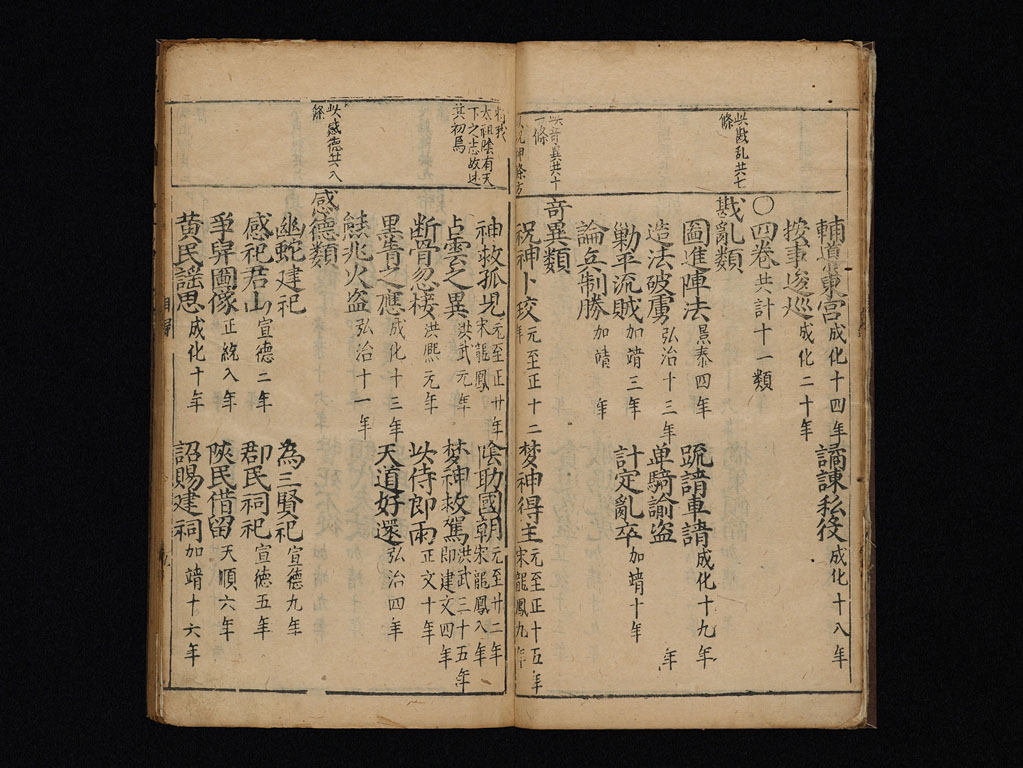 此戡乱共七條
此竒異共十一條
輔導東宮 成化十四年 譎諫私後 成化十八年
按事逡巡 成化二十年
〇四卷 共計十一類
戡亂類
圖進陣法 景泰四年 䟽請車請 成化十九年
造法破虜 弘治十三年 单騎諭盗 年
勦平流賊 加靖三年 計定亂卒 加靖十年
論兵制勝 加靖 年
竒異類
祝神卜珓 元至正十二年 梦神得主 元至正十五年 宋龍鳳九年
太祖陰有天下之志故述其初焉
此感德共八條
神救孤児 元至正廿年 宋龍鳳 陰助國朝 元至廿二年 宋龍鳳八年
占雲之異 洪武元年 梦神救駕 洪武三十五年 即建文四年
断骨忽棲 洪熈元年 以侍郎雨 正文十年
黒眚之應 成化十三年 天道好還 弘治四年
熊兆火盗 弘治十一年
感德類
幽蛇建祀 為三賢祀 宣德九年
感祀君山 宣德二年 郡民祠祀 宣德五年
爭舁圖像 正統八年 陝民借留 天順六年
黄民謡思 成化十年 詔賜建祠 加靖十六年